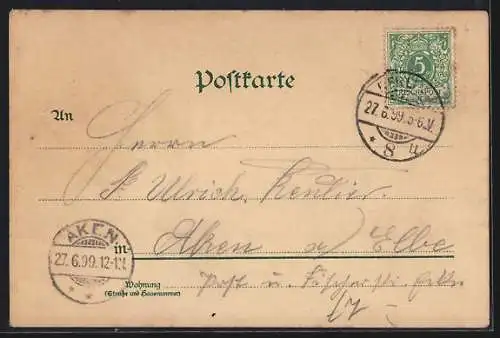 Postkarte
5
REICHSPOST
BERLIN
27.6.99.5-6.V.
* 8 u.
An
Herrn
Ulrich, Rentier.
AKEN
27.6.99.12-1.V.
* *
in
Aken a/ Elbe
Wohnung
(Straße und Hausnummer)
Post u. Fischerstr. Ecke
17